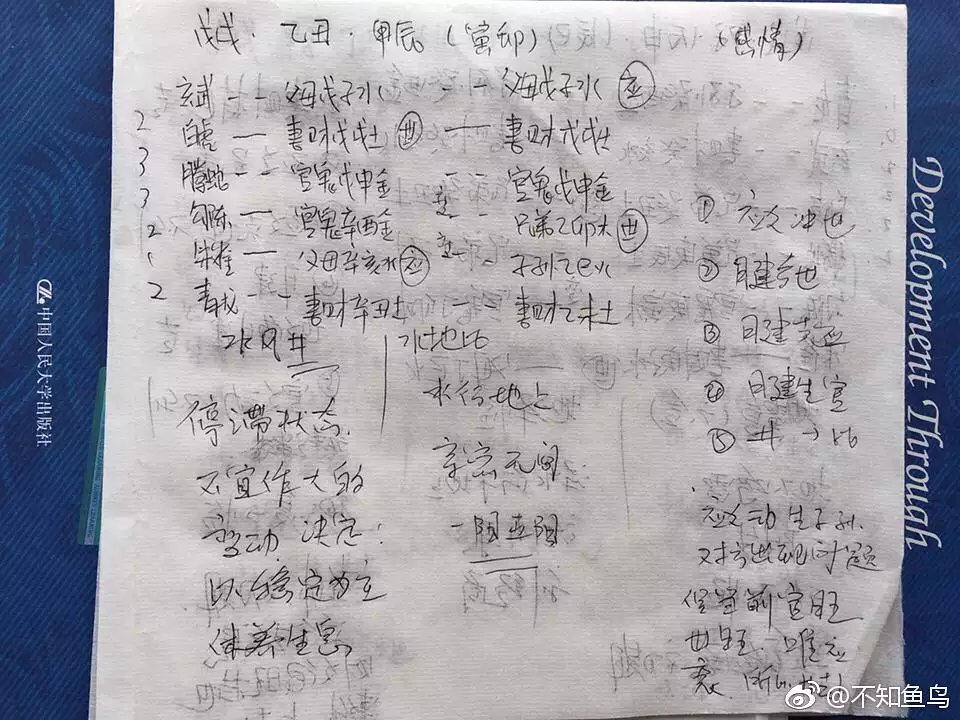 戊戌·乙丑·甲辰(寅卯) (感情)
玄武 -- 父母戊子水 -- 父母戊子水 应
2 白虎 — 妻财戊戌土 世 — 妻财戊戌土
3 腾蛇 -- 官鬼戊申金 -- 官鬼戊申金
3 勾陈 — 官鬼辛酉金 -- 兄弟乙卯木 世
2 朱雀 — 父母辛亥水 应 -- 子孙乙巳火
2 青龙 -- 妻财辛丑土 — 妻财乙未土
水风井
水地比
停滞状态
不宜作大的
变动 决定:
以稳定为主
休养生息
水行地上
亲密无间
① 应爻冲世
② 日建合世
③ 日建克应
④ 日建生官
⑤ 井→比
应爻动生子孙.
对方出现问题
官旺
世旺.唯应
衰.
中国人民大学出版社
Development Through
@不知鱼鸟